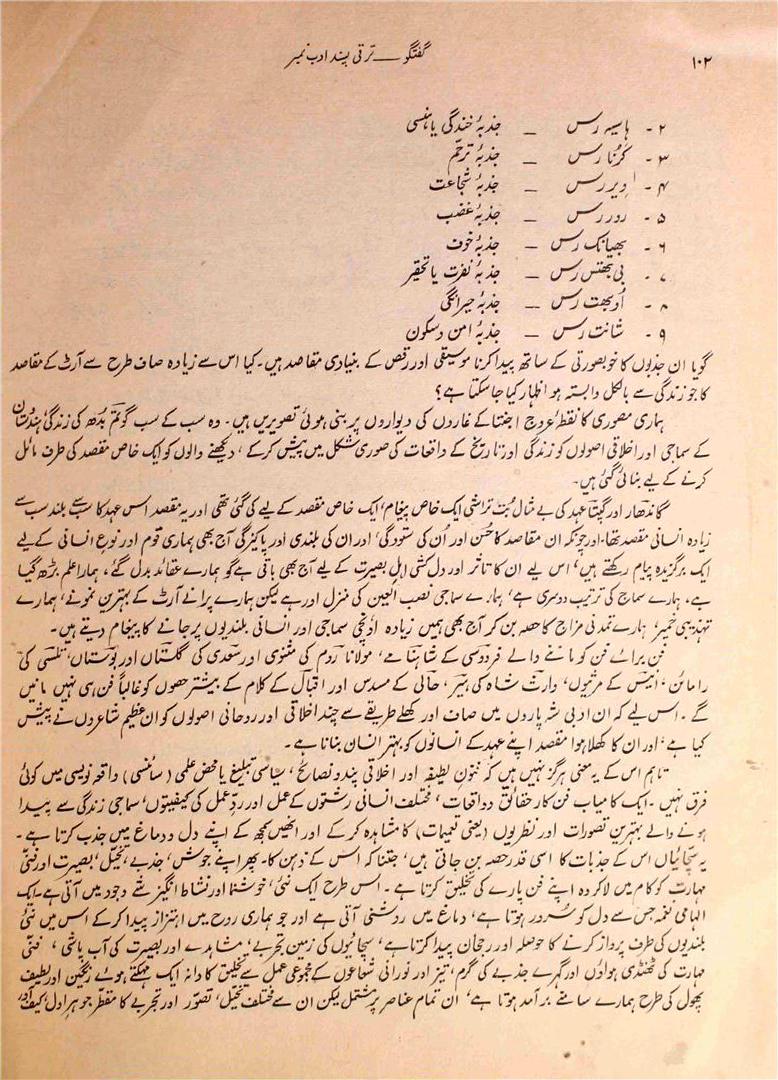 ۱۰۲
گفتگو — ترقی پسند ادب نمبر
۲ - ہاسیہ رس — جذبۂ خندگی یا ہنسی
۳ - کرُنا رس — جذبۂ ترحّم
۴ - ویر رس — جذبۂ شجاعت
۵ - رودر رس — جذبۂ غضب
۶ - بھیانک رس — جذبۂ خوف
۷ - بی بھتس رس — جذبۂ نفرت یا تحقیر
۸ - اُدبھت رس — جذبۂ حیرانگی
۹ - شانت رس — جذبۂ امن و سکون
گویا ان جذبوں کا خوبصورتی کے ساتھ پیدا کرنا موسیقی اور رقص کے بنیادی مقاصد ہیں۔ کیا اس سے زیادہ صاف طرح سے آرٹ کے مقاصد
کا جو زندگی سے بالکل وابستہ ہو اظہار کیا جا سکتا ہے؟
ہماری مصوری کا نقطۂ عروج اجنتا کے غاروں کی دیواروں پر بنی ہوئی تصویریں ہیں۔ وہ سب کے سب گوتم بُدھ کی زندگی، ہندوستان
کے سماجی اور اخلاقی اصولوں کو زندگی اور تاریخ کے واقعات کی صوری شکل میں پیش کر کے، دیکھنے والوں کو ایک خاص مقصد کی طرف مائل
کرنے کے لیے بنائی گئی ہیں۔
گاندھار اور گپتا عہد کی بے مثال بُت تراشی ایک خاص پیغام، ایک خاص مقصد کے لیے کی گئی تھی اور یہ مقصد اس عہد کا سب سے بلند سب سے
زیادہ انسانی مقصد تھا۔ اور چونکہ ان مقاصد کا حُسن اور اُن کی ستودگی، اور ان کی بلندی اور پاکیزگی آج بھی ہماری قوم اور نوعِ انسانی کے لیے
ایک برگزیدہ پیام رکھتے ہیں، اس لیے ان کا تاثر اور دل کشی اہلِ بصیرت کے لیے آج بھی باقی ہے گو ہمارے عقائد بدل گئے، ہمارا علم بڑھ گیا
ہے، ہمارے سماج کی ترتیب دوسری ہے، ہمارے سماجی نصب العین کی منزل اور ہے لیکن ہمارے پرانے آرٹ کے بہترین نمونے، ہمارے
تہذیبی خمیر، ہمارے تمدنی مزاج کا حصہ بن کر آج بھی ہمیں زیادہ اونچی سماجی اور انسانی بلندیوں پر جانے کا پیغام دیتے ہیں۔
فن برائے فن کو ماننے والے فردوسی کے شاہنامے، مولانا روم کی مثنوی اور سعدی کی گلستاں اور بوستاں، تلسی کی
رامائن، انیس کے مرثیوں، وارث شاہ کی ہیر، حالی کے مسدس اور اقبال کے کلام کے بیشتر حصوں کو غالباً فن ہی نہیں مانیں
گے۔ اس لیے کہ ان ادبی شہ پاروں میں صاف اور کھلے طریقے سے چند اخلاقی اور روحانی اصولوں کو ان عظیم شاعروں نے پیش
کیا ہے، اور ان کا کھلا ہوا مقصد اپنے عہد کے انسانوں کو بہتر انسان بنانا ہے۔
تاہم اس کے یہ معنی ہرگز نہیں ہیں کہ فنونِ لطیفہ اور اخلاقی پند و نصائح، سیاسی تبلیغ یا محض علمی (سائنسی) واقعہ نویسی میں کوئی
فرق نہیں۔ ایک کامیاب فن کار حقائق و واقعات، مختلف انسانی رشتوں کے عمل اور ردِّ عمل کی کیفیتوں، سماجی زندگی سے پیدا
ہونے والے بہترین تصورات اور نظریوں (یعنی تعمیمات) کا مشاہدہ کر کے اور انھیں سمجھ کے اپنے دل و دماغ میں جذب کرتا ہے۔
یہ سچائیاں اس کے جذبات کا اسی قدر حصہ بن جاتی ہیں، جتنا کہ اس کے ذہن کا۔ پھر اپنے جوش، جذبے، تخیل، بصیرت اور فنّی
مہارت کو کام میں لا کر وہ اپنے فن پارے کی تخلیق کرتا ہے۔ اس طرح ایک نئی، خوشنما اور نشاط انگیز شے وجود میں آتی ہے۔ ایک
الہامی نغمہ جس سے دل کو سُرور ہوتا ہے، دماغ میں روشنی آتی ہے اور جو ہماری روح میں اہتزاز پیدا کر کے اس میں نئی
بلندیوں کی طرف پرواز کرنے کا حوصلہ اور رجحان پیدا کرتا ہے، سچائیوں کی زمین تجربے، مشاہدے اور بصیرت کی آب پاشی، فنّی
مہارت کی ٹھنڈی ہواؤں اور گہرے جذبے کی گرم، تیز اور نورانی شعاعوں کے مجموعی عمل سے تخلیق کا دانہ ایک مہکتے ہوئے رنگین اور لطیف
پھول کی طرح ہمارے سامنے برآمد ہوتا ہے، ان تمام عناصر پر مشتمل لیکن ان سے مختلف تخیّل، تصوّر اور تجربے کا مقطّر جوہر اول، کیف آور،